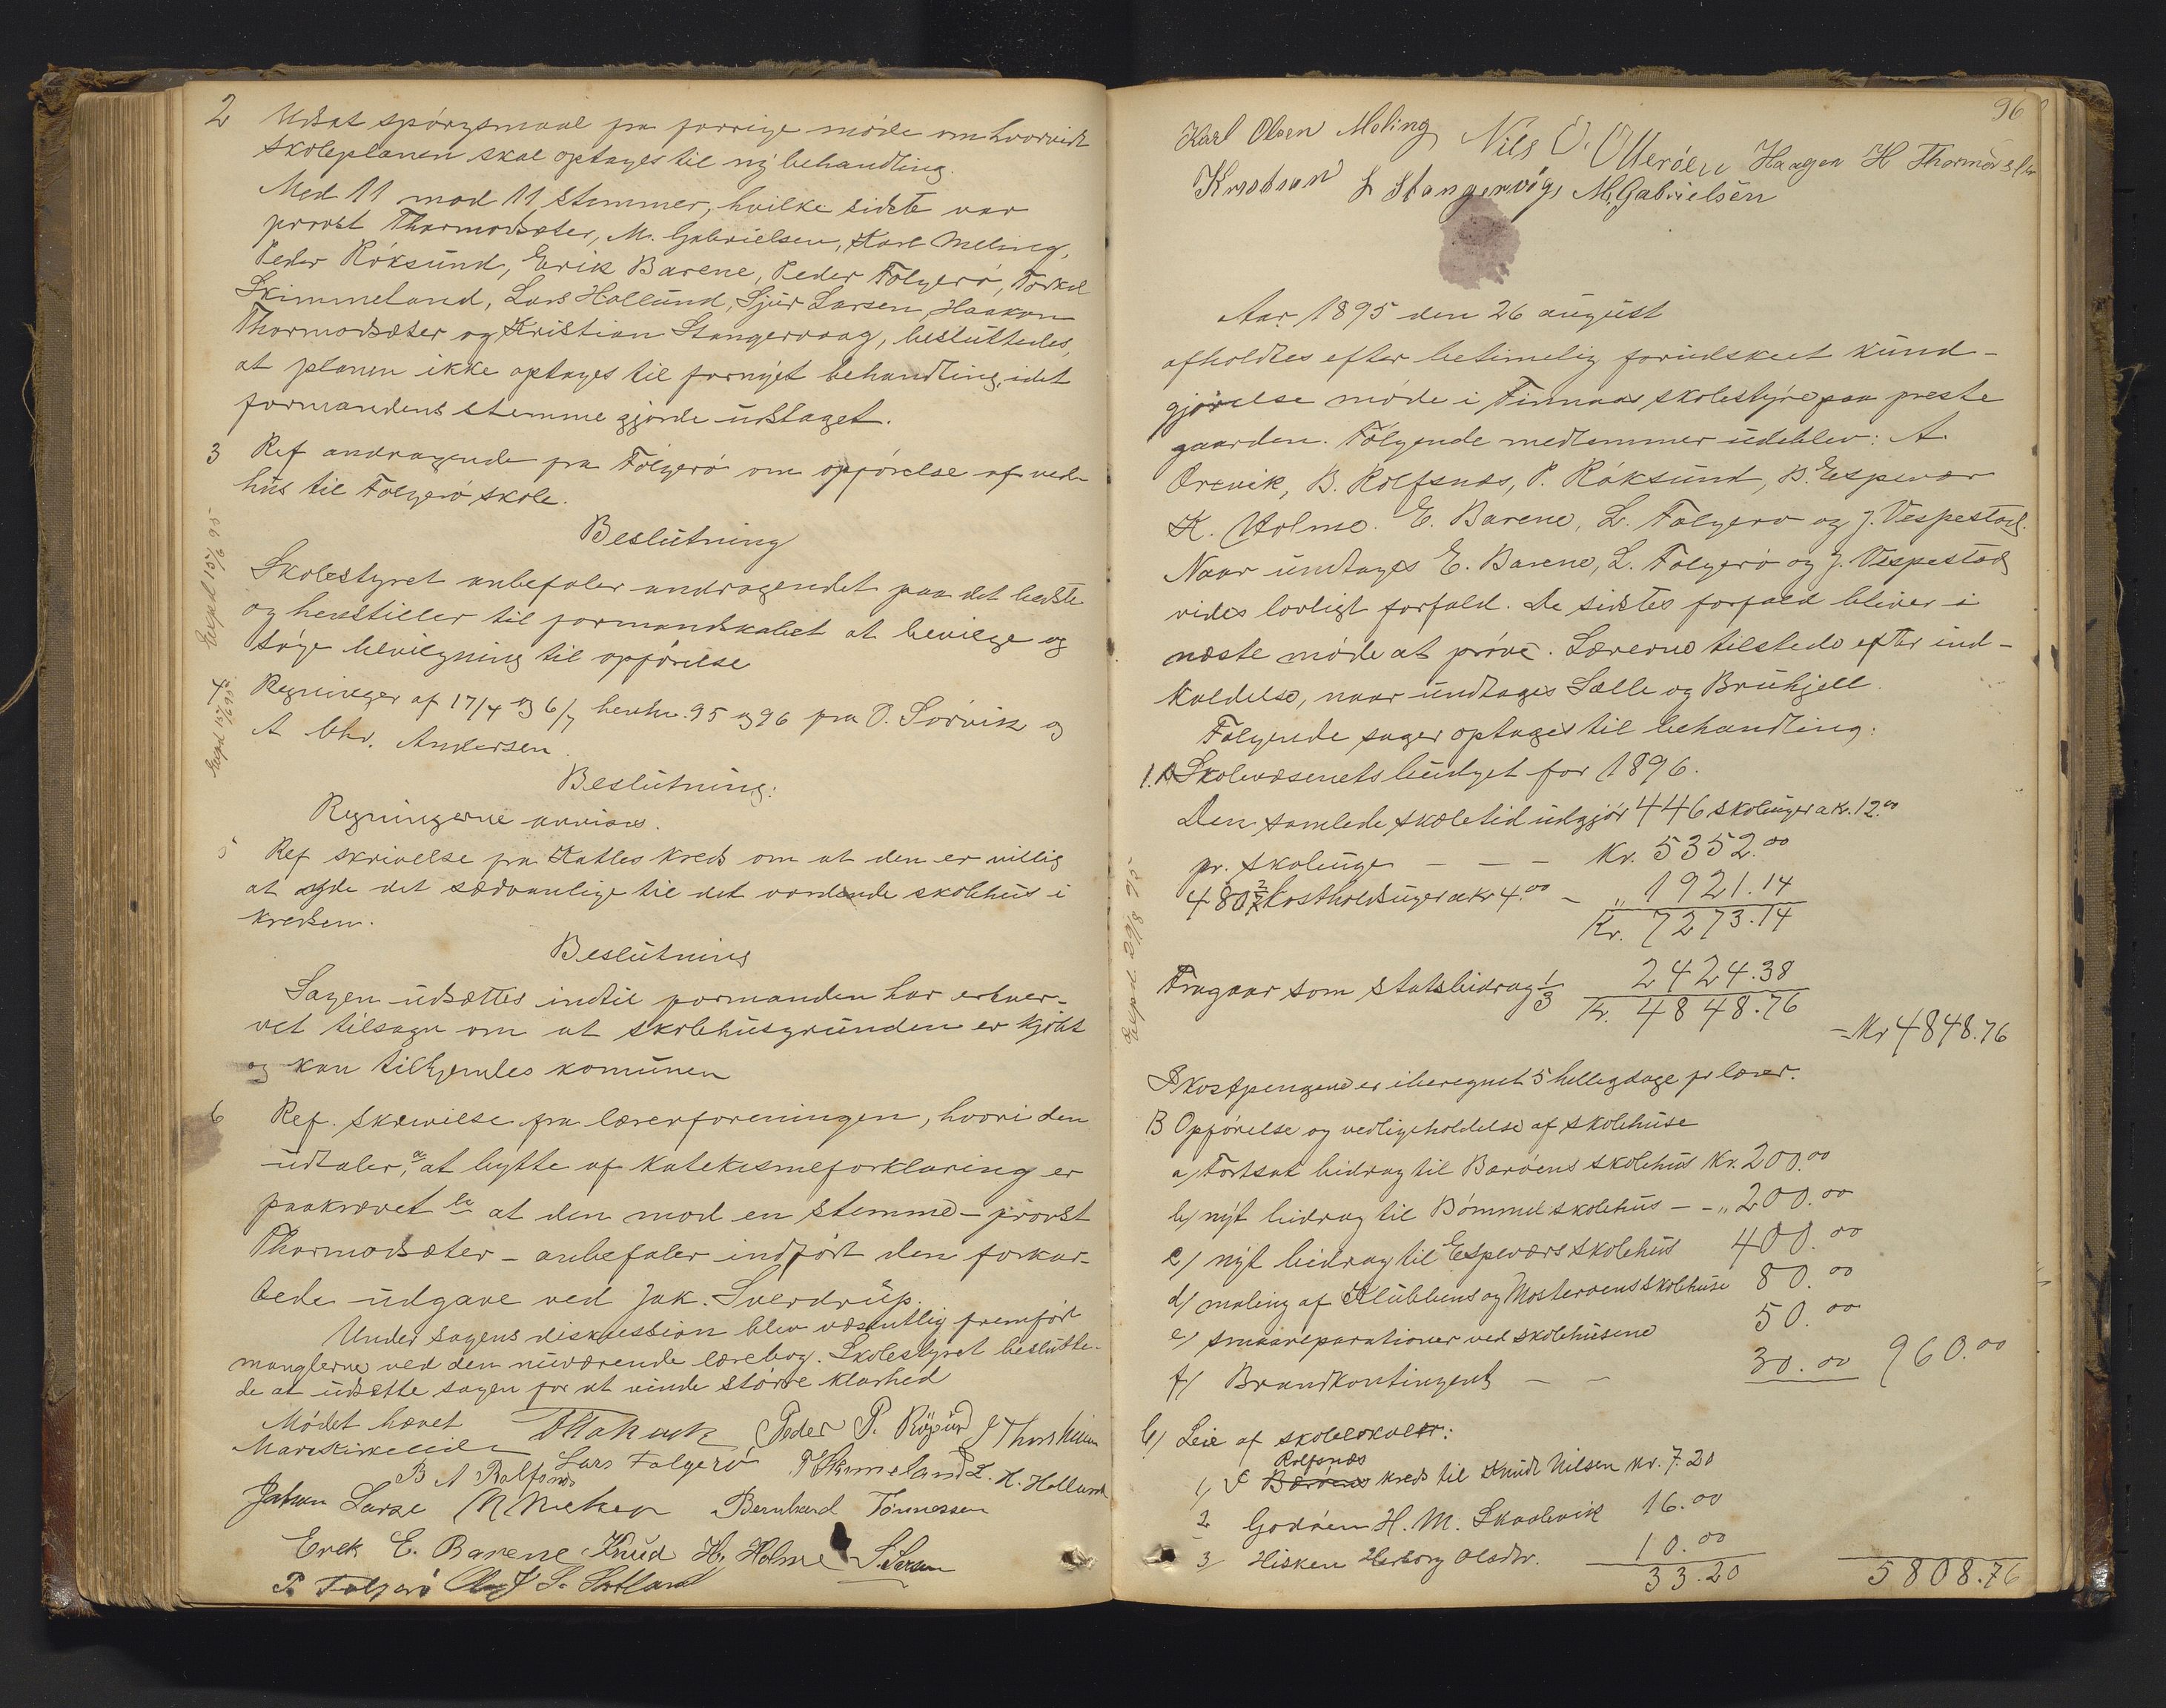 2 Udsat spörgsmaal fra forrige möde om hvorvidt
skoleplanen skal optages til ny behandling.
Med 11 mod 11 stemmer, hvilke sidste var
provst Thormodsæter, M. Gabrielsen, Karl Meling,
Peder Röksund, Erik Barene, Peder Folgerö, Torkel
Skimmeland, Lars Hollund, Sjur Larsen, Haakon
Thormodsæter og Kristian Stangervaag, besluttedes,
at planen ikke optages til fornyet behandling, idet
formandens stemme gjorde udslaget.
3 Ref andragende fra Folgerö om opförelse af ved-
hus til Folgerö skole.
Beslutning
Expd 15/6 95
Skolestyret anbefaler andragendet paa det bedste
og henstiller til formandskabet at bevilge og
söge bevilgning til opförelse
4 Regninger af 17/4 og 6/7 henhv. 95 og 96 fra O. Sörvik og
A Chr. Andersen.
Expd 15/6 95
Beslutning:
Regningerne anvises.
5 Ref skrivelse fra Katles kreds om at den er villig
at yde det sædvanlige til det vordende skolehus i
kredsen.
Beslutning
Sagen udsættes indtil formanden har erhver-
vet tilsagn om at skolehusgrunden er kjöbt
og kan tilhjemles komunen
6 Ref. Skrivelse fra lærerforeningen, hvori den
udtaler, a, at bytte af katekismeforklaring er
paakrævet b, at den mod en stemme - provst
Thormodsæter - anbefaler indfört den forkor-
tede udgave ved Jak. Sverdrup.
Under sagens diskussion blev væsentlig fremfört
manglerne ved den nuværende lærebog. Skolestyret beslutte-
de at udsætte sagen for at vinde större klarhed
Mödet hævet Peder P. Röksund
B A Rolfsnes Lars Folgerö T Skimmeland L. H. Hollund
Bernhard Tönnessen
Erek E. Barene Knud H. Holme S. Larsen
P. Folgerö
96
Karl Olsen Meling Nils O. Otteröen Haagen H Thormodsæter
Knudsen K Stangervåg M. Gabrielsen
Aar 1895 den 26 august
afholdtes efter betimelig forudskeet kund-
gjörelse möde i Finnaas skolestyre paa preste
gaarden. Fölgende medlemmer udeblev: A.
Orevik, B. Rolfsnæs, P. Röksund, B. Espevær
K. Holme. E. Barene, L. Folgerö og J. Vespestad.
Naar undtages E. Barene, L. Folgerö og J. Vespestad
vides lovligt forfald. De sidstes forfald bliver i
næste möde at pröve. Lærerne tilstede efter ind-
kaldelse, naar undtages Sælle og Bruhjell
Folgende sager optages til behandling:
1. A Skolevæsenets budget for 1896.
Den samlede skoletid udgjör 446 skoleuger a kr. 12.00
pr. skoleuge - - - Kr. 5352.00
480 2/7 kostholdsuger a kr 4.00 - „ 1921.14
Kr. 7273.14
Expd. 29/8 95
Fragaar som statsbidrag 1/3 2424.38
Kr. 4848.76
= Kr 4848.76
I kostpengene er iberegnet 5 helligdage pr lærer.
B Opförelse og vedligeholdelse af skolehuse
a, Fortsat bidrag til Baröens skolehus Kr. 200.00
b, nyt bidrag til Bömmel skolehus - - „ 200.00
c/ nyt bidrag til Espeværs skolehus 400.00
d/ maling af Klubbens og Mosterøens skolehuse 80.00
e/ smaareparationer ved skolehusene 50.00
f/ Brandkontingent - - 30.00 960.00
C/ Leie af skolelokaler:
Rolfsnæs
1, Baröens kreds til Knudt Nilsen kr. 7.20
2 Godöen H. M. Skaalevik 16.00
3/ Hisken Herborg Olsdtr. 10.00
33.20 5808.76